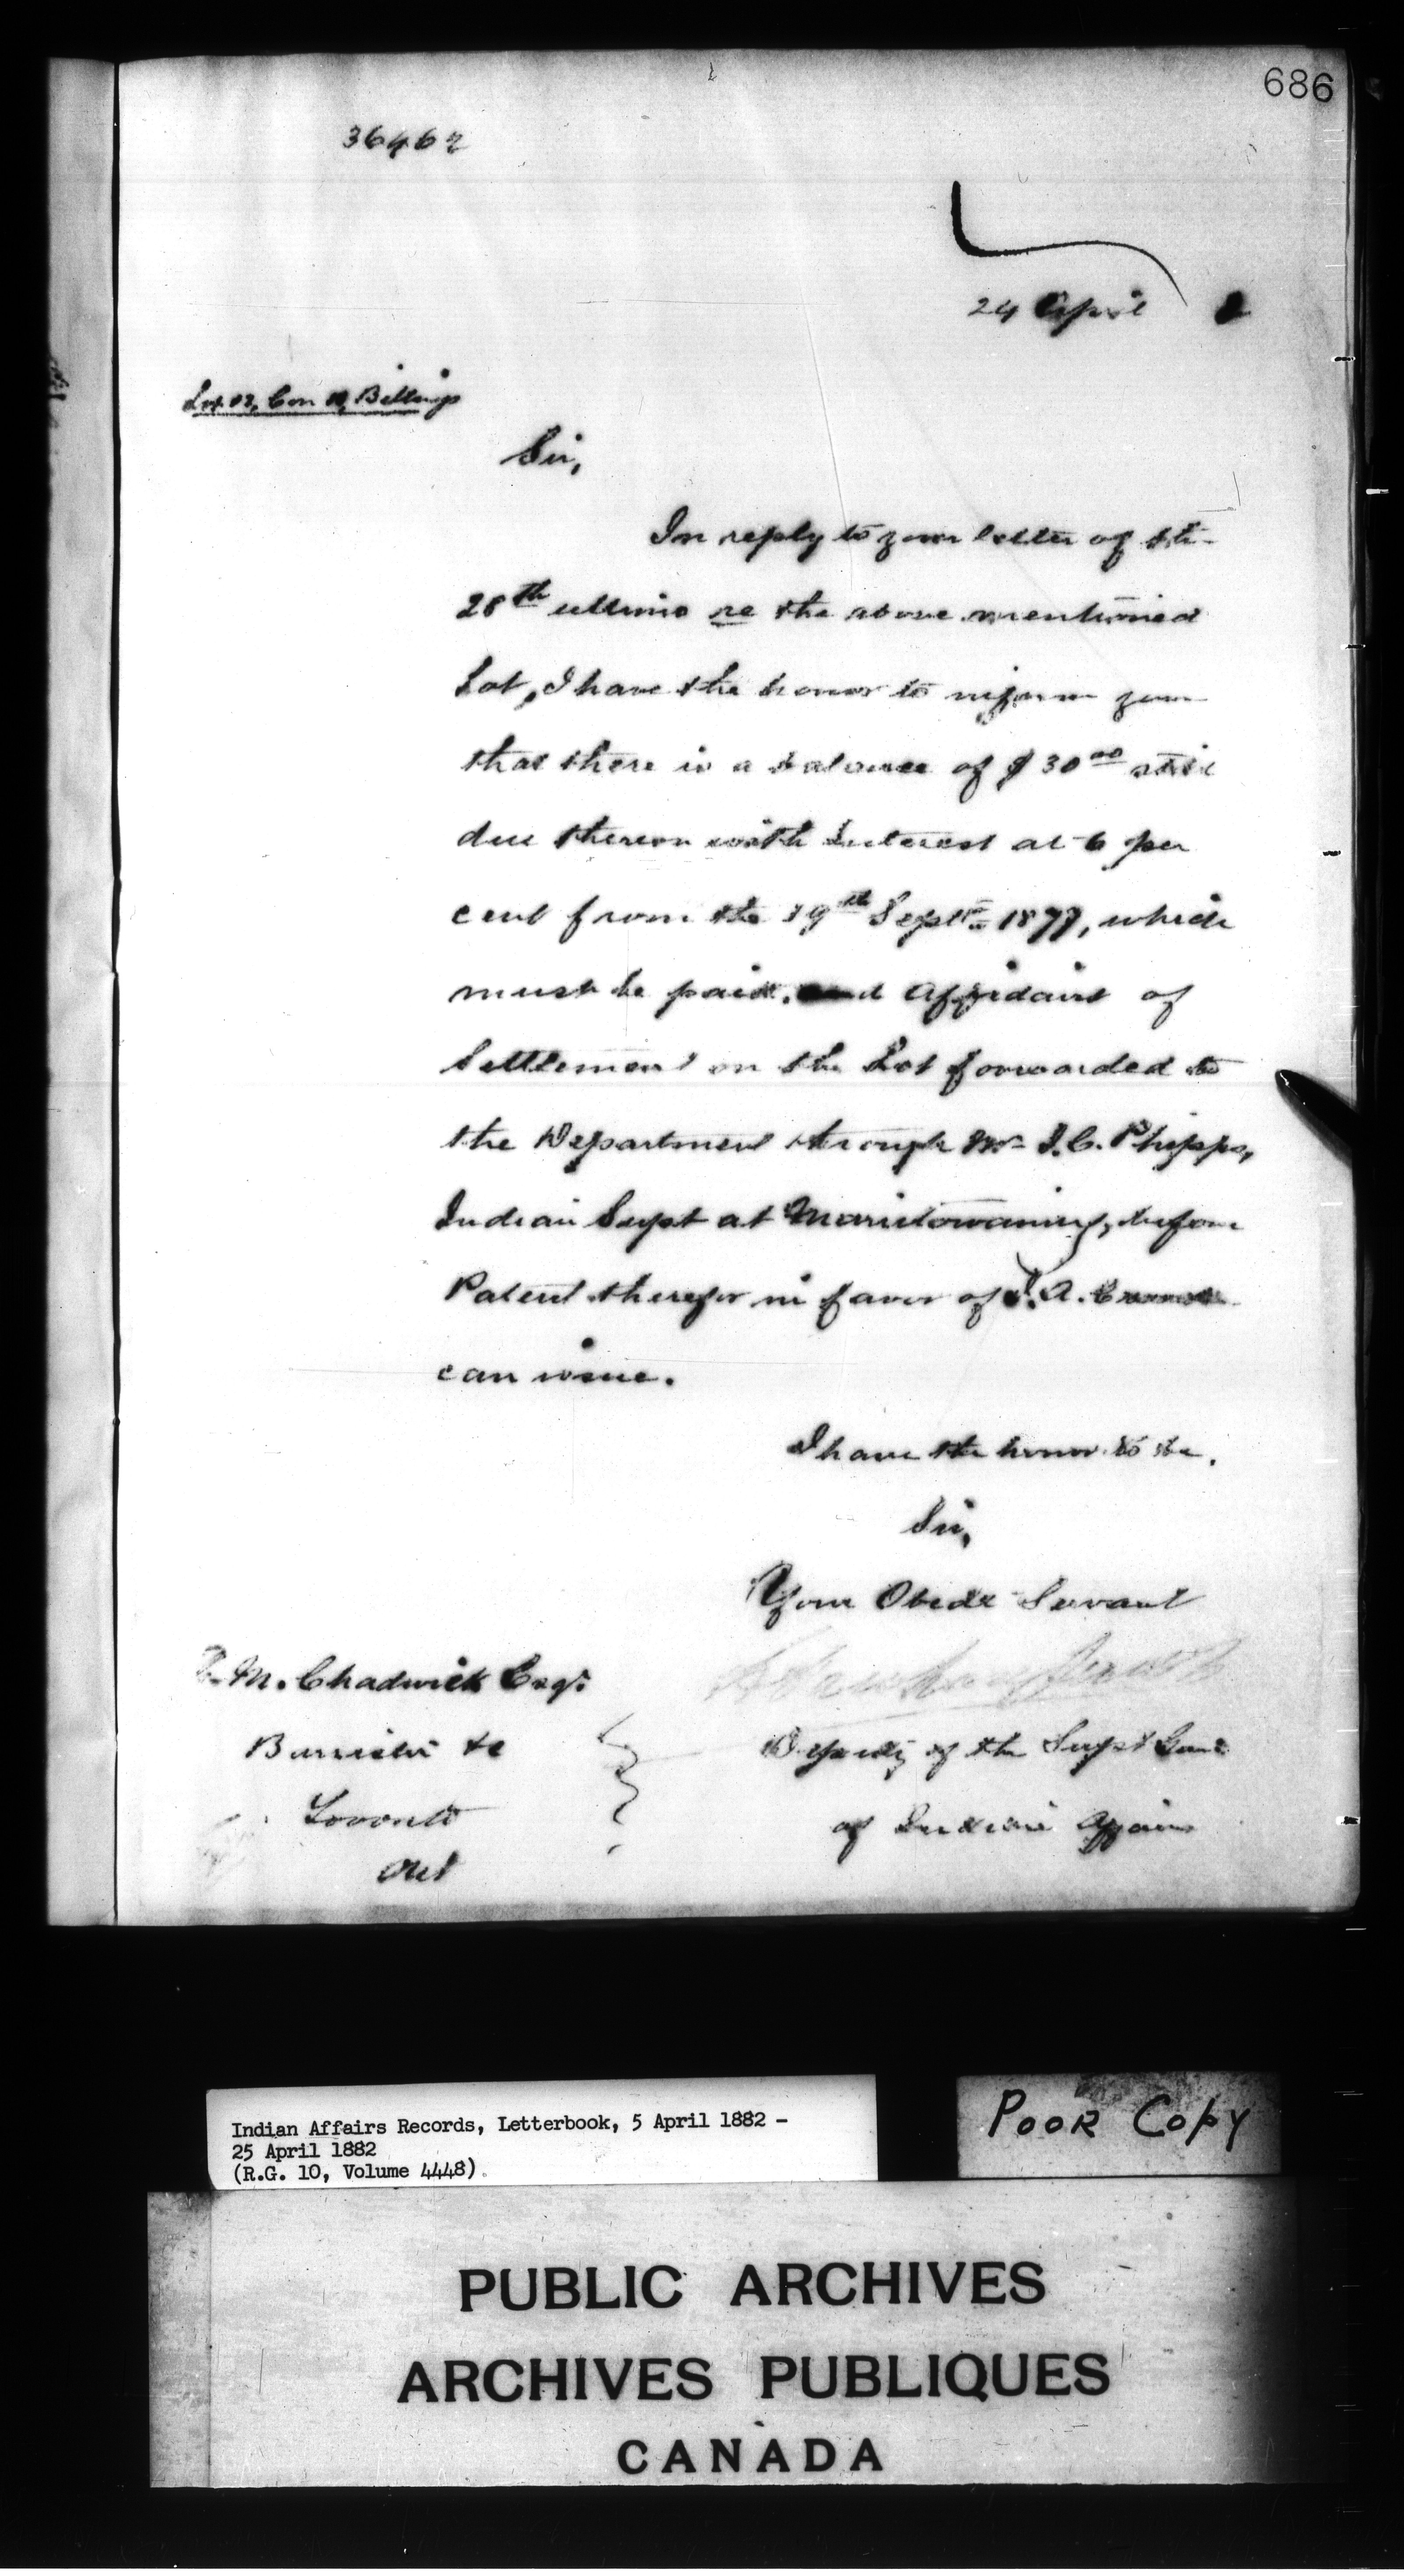 686
36462
24 April 2
Lot 12, Con Billings
Sir,
In reply to your letter of the
28th ultimo re the above mentioned
Lot, I have the honor to inform you
that there is a balance of $30 00 still
due thereon with Interest at 6 per
cent from the 19th Septr 1877, which
must be paid, and Affidavit of
Settlement on the Lot forwarded to
the Department through Mr J.C. Phipps,
Indian Supt at Manitowaning, before
Patent therefor in favor of J. A.
can issue.
I have the honor to be,
Sir,
Your Obedt Servant
M. Chadwick Esqr
Barrister &c
Toronto
Ont
Deputy of the Supt Genl
of Indian Affairs
Indian Affairs Records, Letterbook, 5 April 1882 -
25 April 1882
(R.G. 10, Volume 4448)
POOR COPY
PUBLIC ARCHIVES
ARCHIVES PUBLIQUES
CANADA